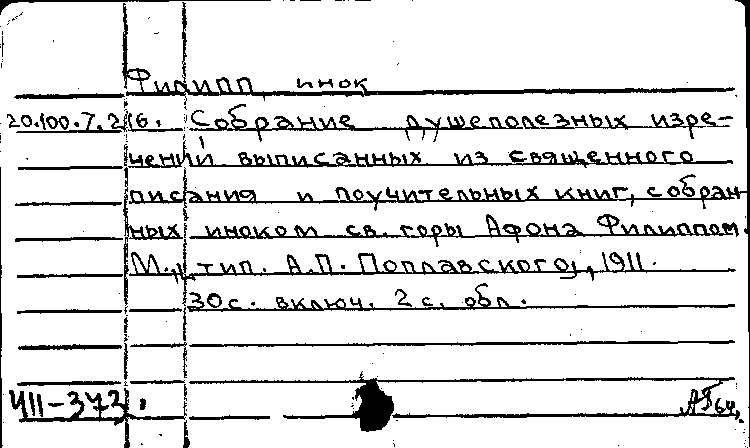 Филипп, инок
20.100.7.216. Собрание душеполезных изре-
чений выписанных из священного
писания и поучительных книг, собран-
ных иноком св. горы Афона Филиппом.
М., "тип. А.П. Поплавского", 1911.
30 с. включ. 2 с. обл.
Ч11-373.